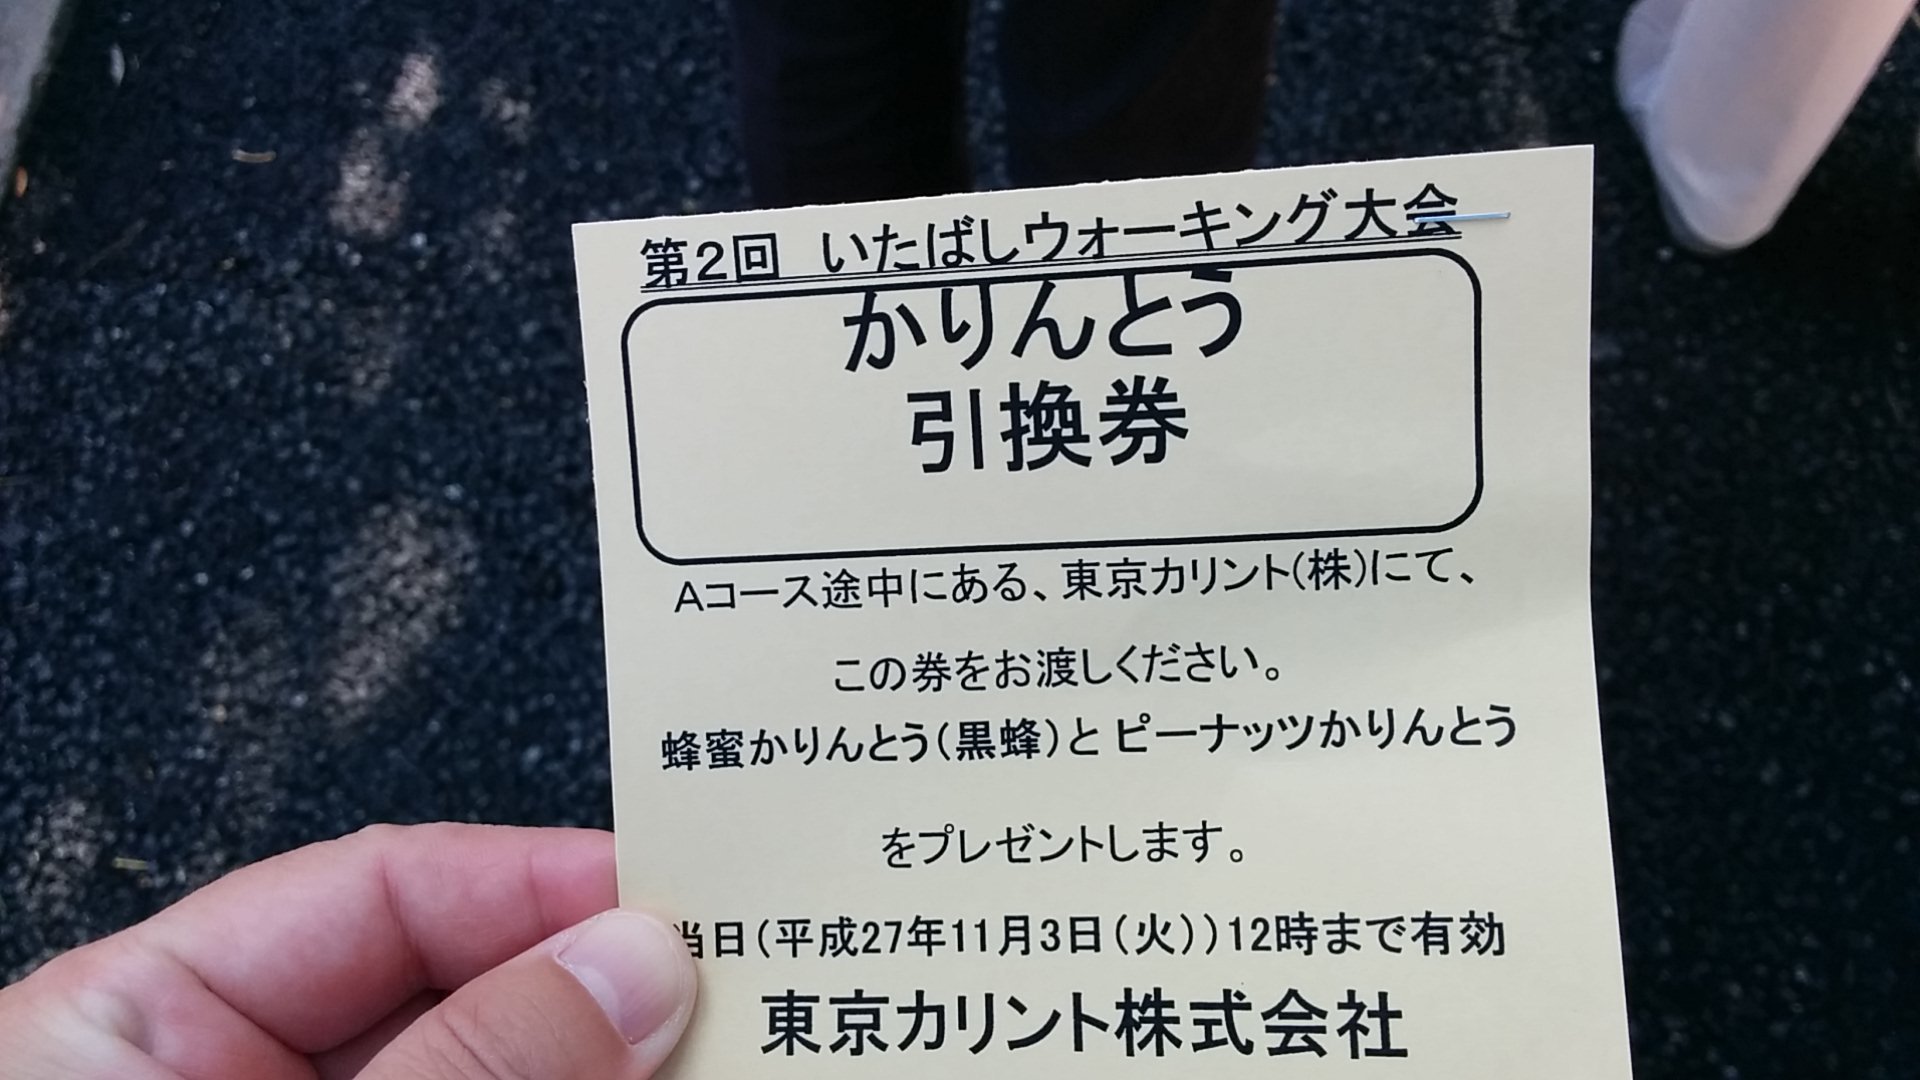 第2回 いたばしウォーキング大会
かりんとう
引換券
Aコース途中にある、東京カリント(株)にて、
この券をお渡しください。
蜂蜜かりんとう(黒蜂)とピーナッツかりんとう
をプレゼントします。
当日(平成27年11月3日(火))12時まで有効
東京カリント株式会社